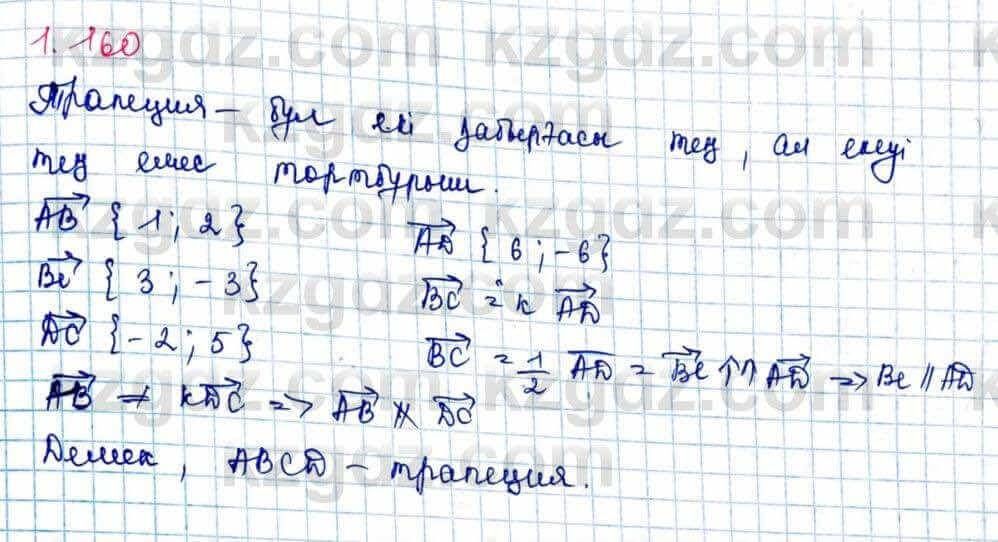 1.160
Трапеция – бұл екі қабырғасы тең, ал екеуі
тең емес төртбұрыш.
AB {1; 2} AD {6; -6}
BC {3; -3} BC = k AD
DC {-2; 5} BC = 1/2 AD = BC ↑↑ AD => BC ∥ AD
AB ≠ k DC => AB ∦ DC
Демек, ABCD – трапеция.
kzgdz.com